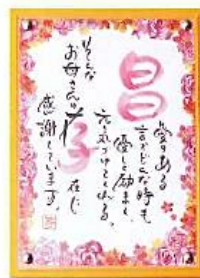 昌
愛のある
どんな時も
優しく励まし
元気づけてくれる
そんな
お母さんの存在に
感謝しています。